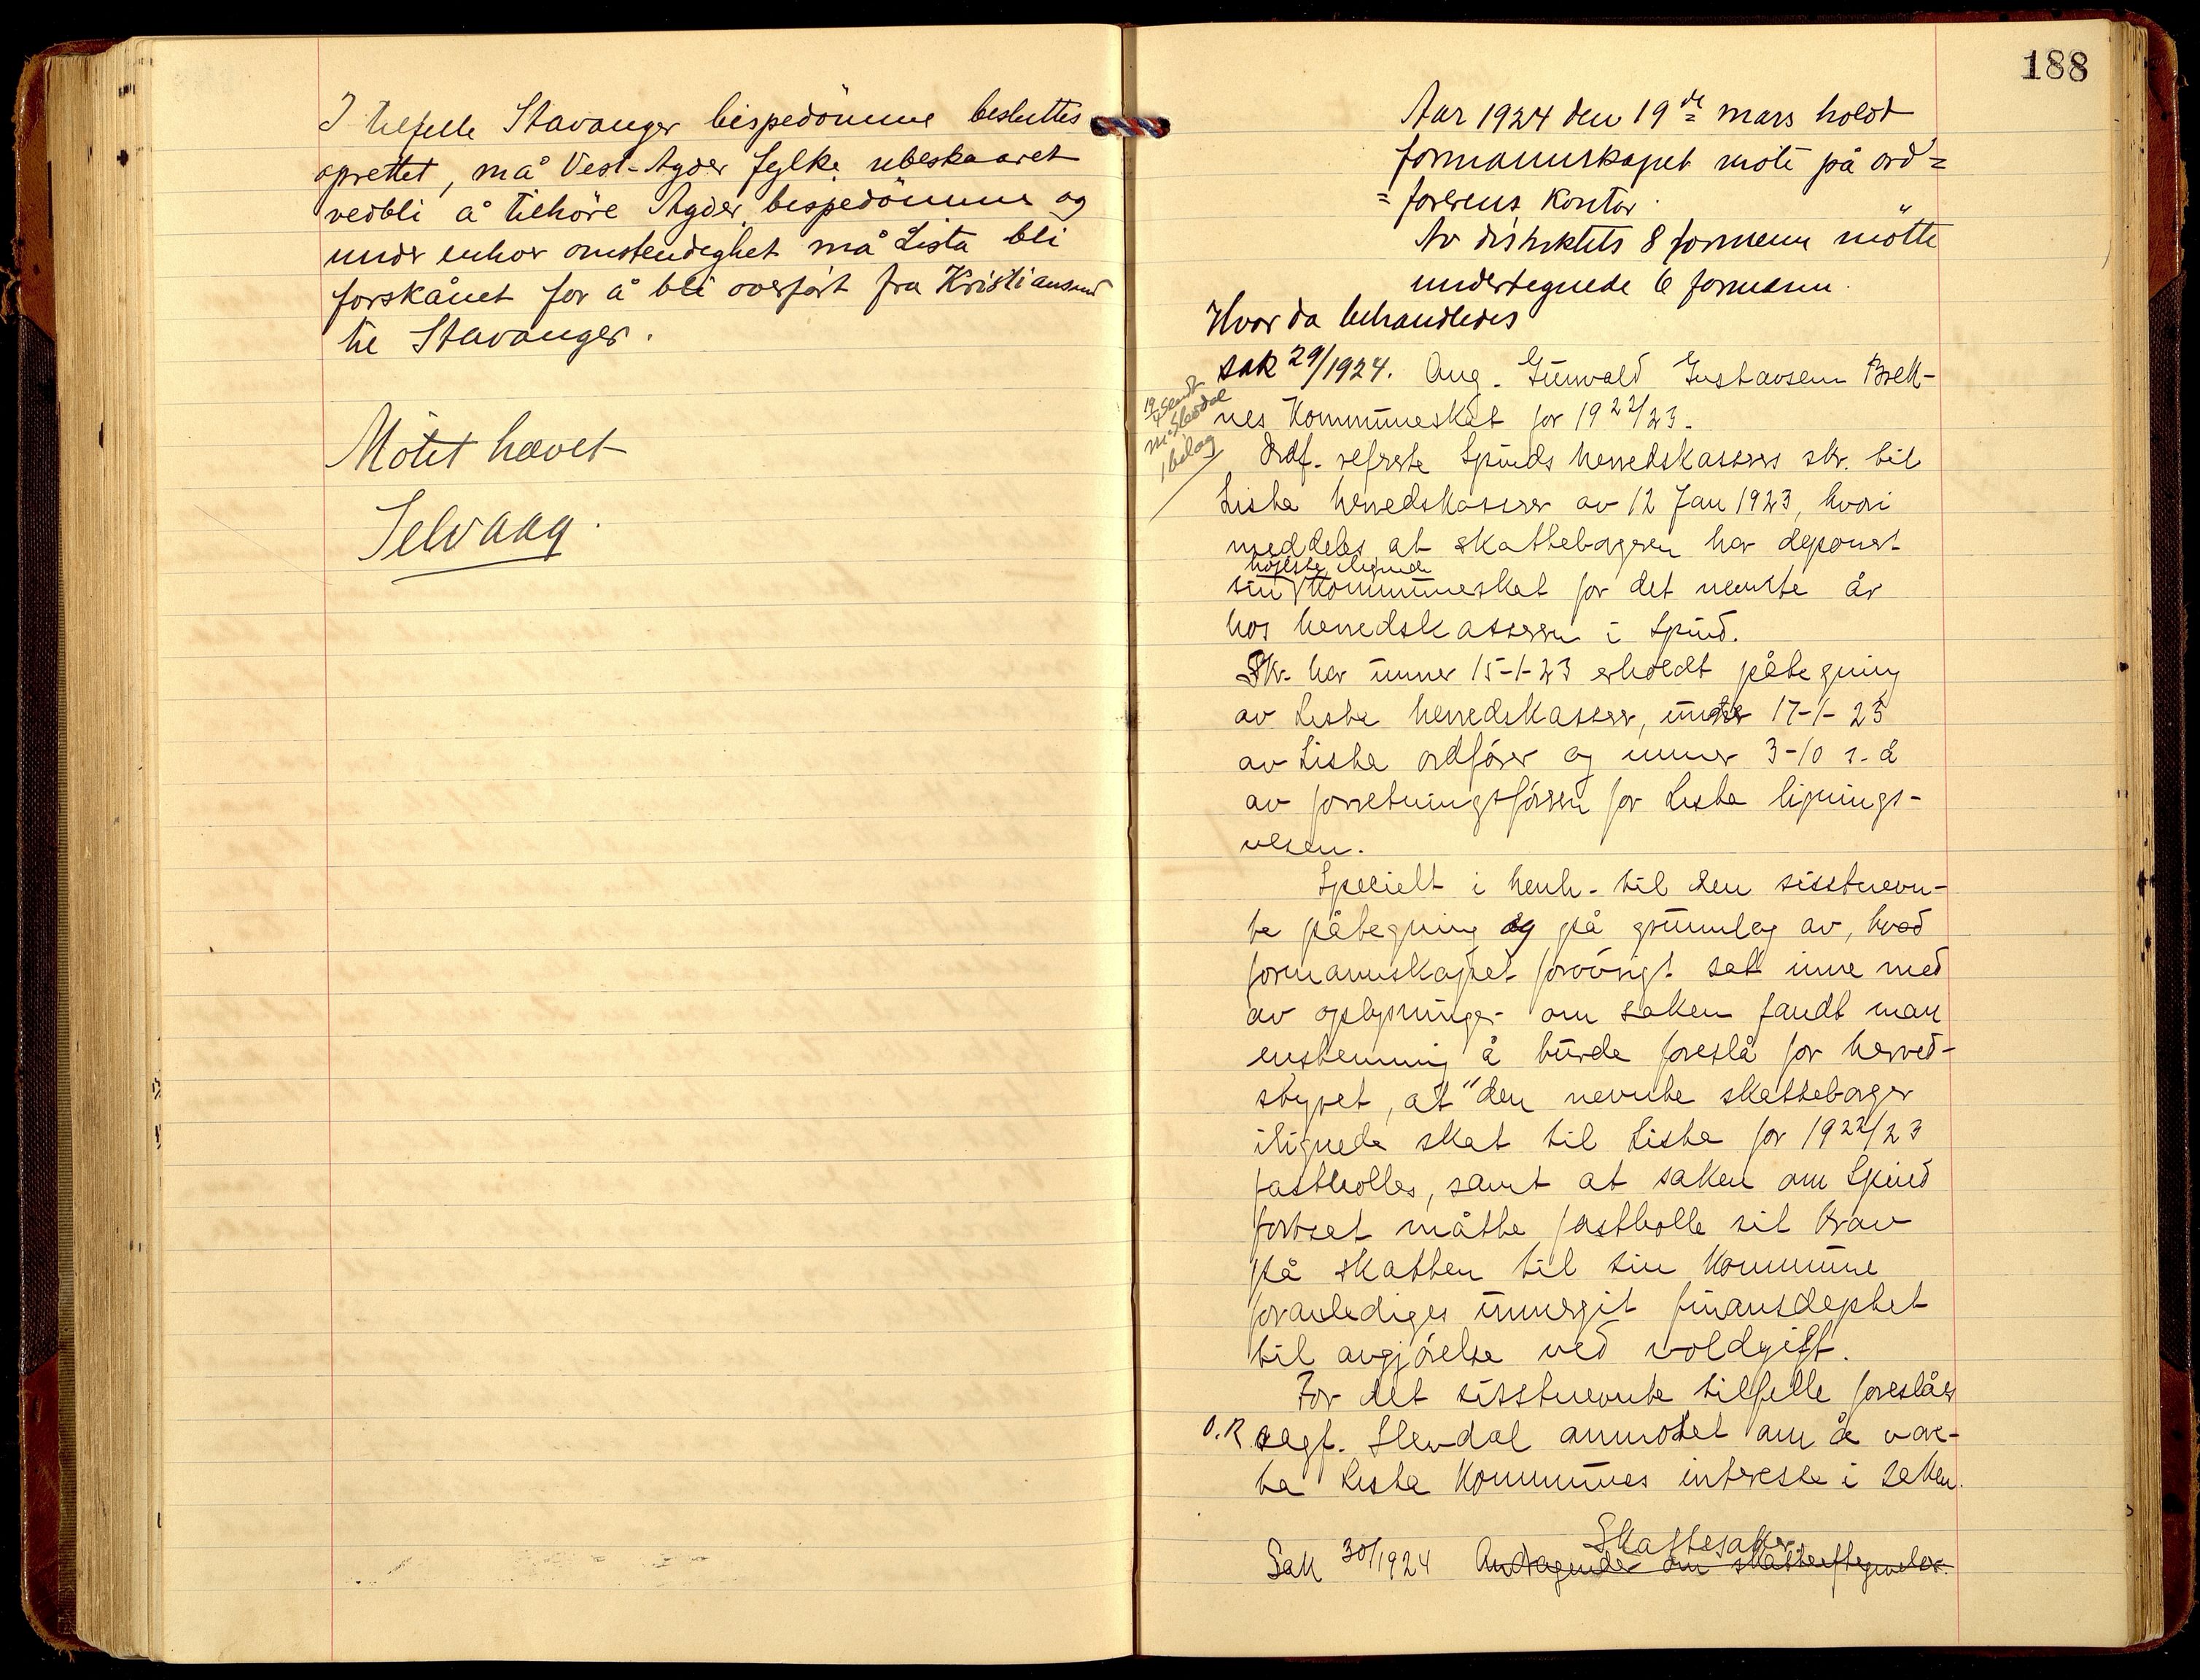 I tilfelle Stavanger bispedömme besluttes
oprettet, må Vest-Agder fylke ubeskaaret
vedbli å tilhöre Agder bispedömme og
under enhver omstendighet må Lista bli
forskånet for å bli overfört fra Kristiansand
til Stavanger.
Mötet hævet
Selvaag.
188
Aar 1924 den 19de mars holdt
formannskapet möte på ord=
=förerens kontor.
Av distriktets 8 formenn mötte
undertegnede 6 formenn.
Hvor da behandledes
sak 29/1924. Aug. Gunvald Gustavsen Brek-
nes Kommuneskat for 1922/23.
19/4 sendt
m. Slevdal
1 bilag
Ordf. referte Spinds herredskasserers skr. til
Lista herredskasserer av 12 Jan 1923, hvori
meddeles at skatteborgeren har deponert
höieste ilignede
sin kommuneskat for det nevnte år
hos herredskassereren i Spind.
Skr. har unner 15-1-23 erholdt påtegning
av Lista herredskasserer, under 17-1-23
av Lista ordförer og unner 3-10 s. å
av forretningsföreren for Lista lignings-
vesen.
Specielt i henh. til den sisstnevn-
te påtegning og på grunnlag av, hvad
formannskapet forövrigt satt inne med
av oplysninger om saken fandt man
enstemmig å burde foreslå for herred-
styret, at "den nevnte skatteborger
ilignede skat til Lista for 1922/23
fastholles, samt at saken om Spind
fortsat måtte fastholle sit krav
på skatten til sin Kommune
foranlediges unnergit finansdeptet
til avgjörelse ved voldgift.
For det sisstnevnte tilfelle foreslåes
O.R. sagf. Slevdal anmodet om å vare-
ta Lista Kommunes interesse i saken.
Skattesaker.
Sak 30/1924 Andragender om skatteeftergivelse.